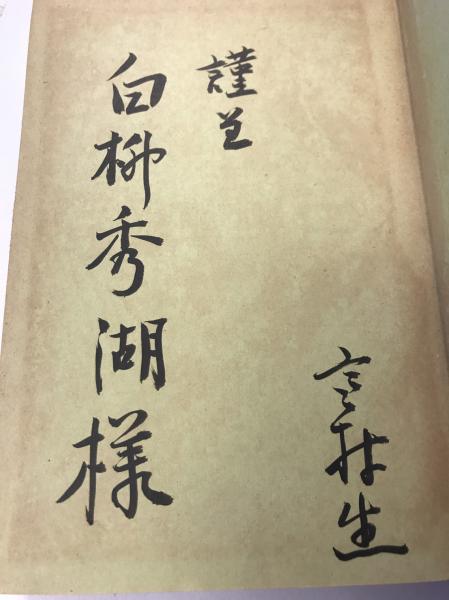 寒村生
謹呈
白柳秀湖様